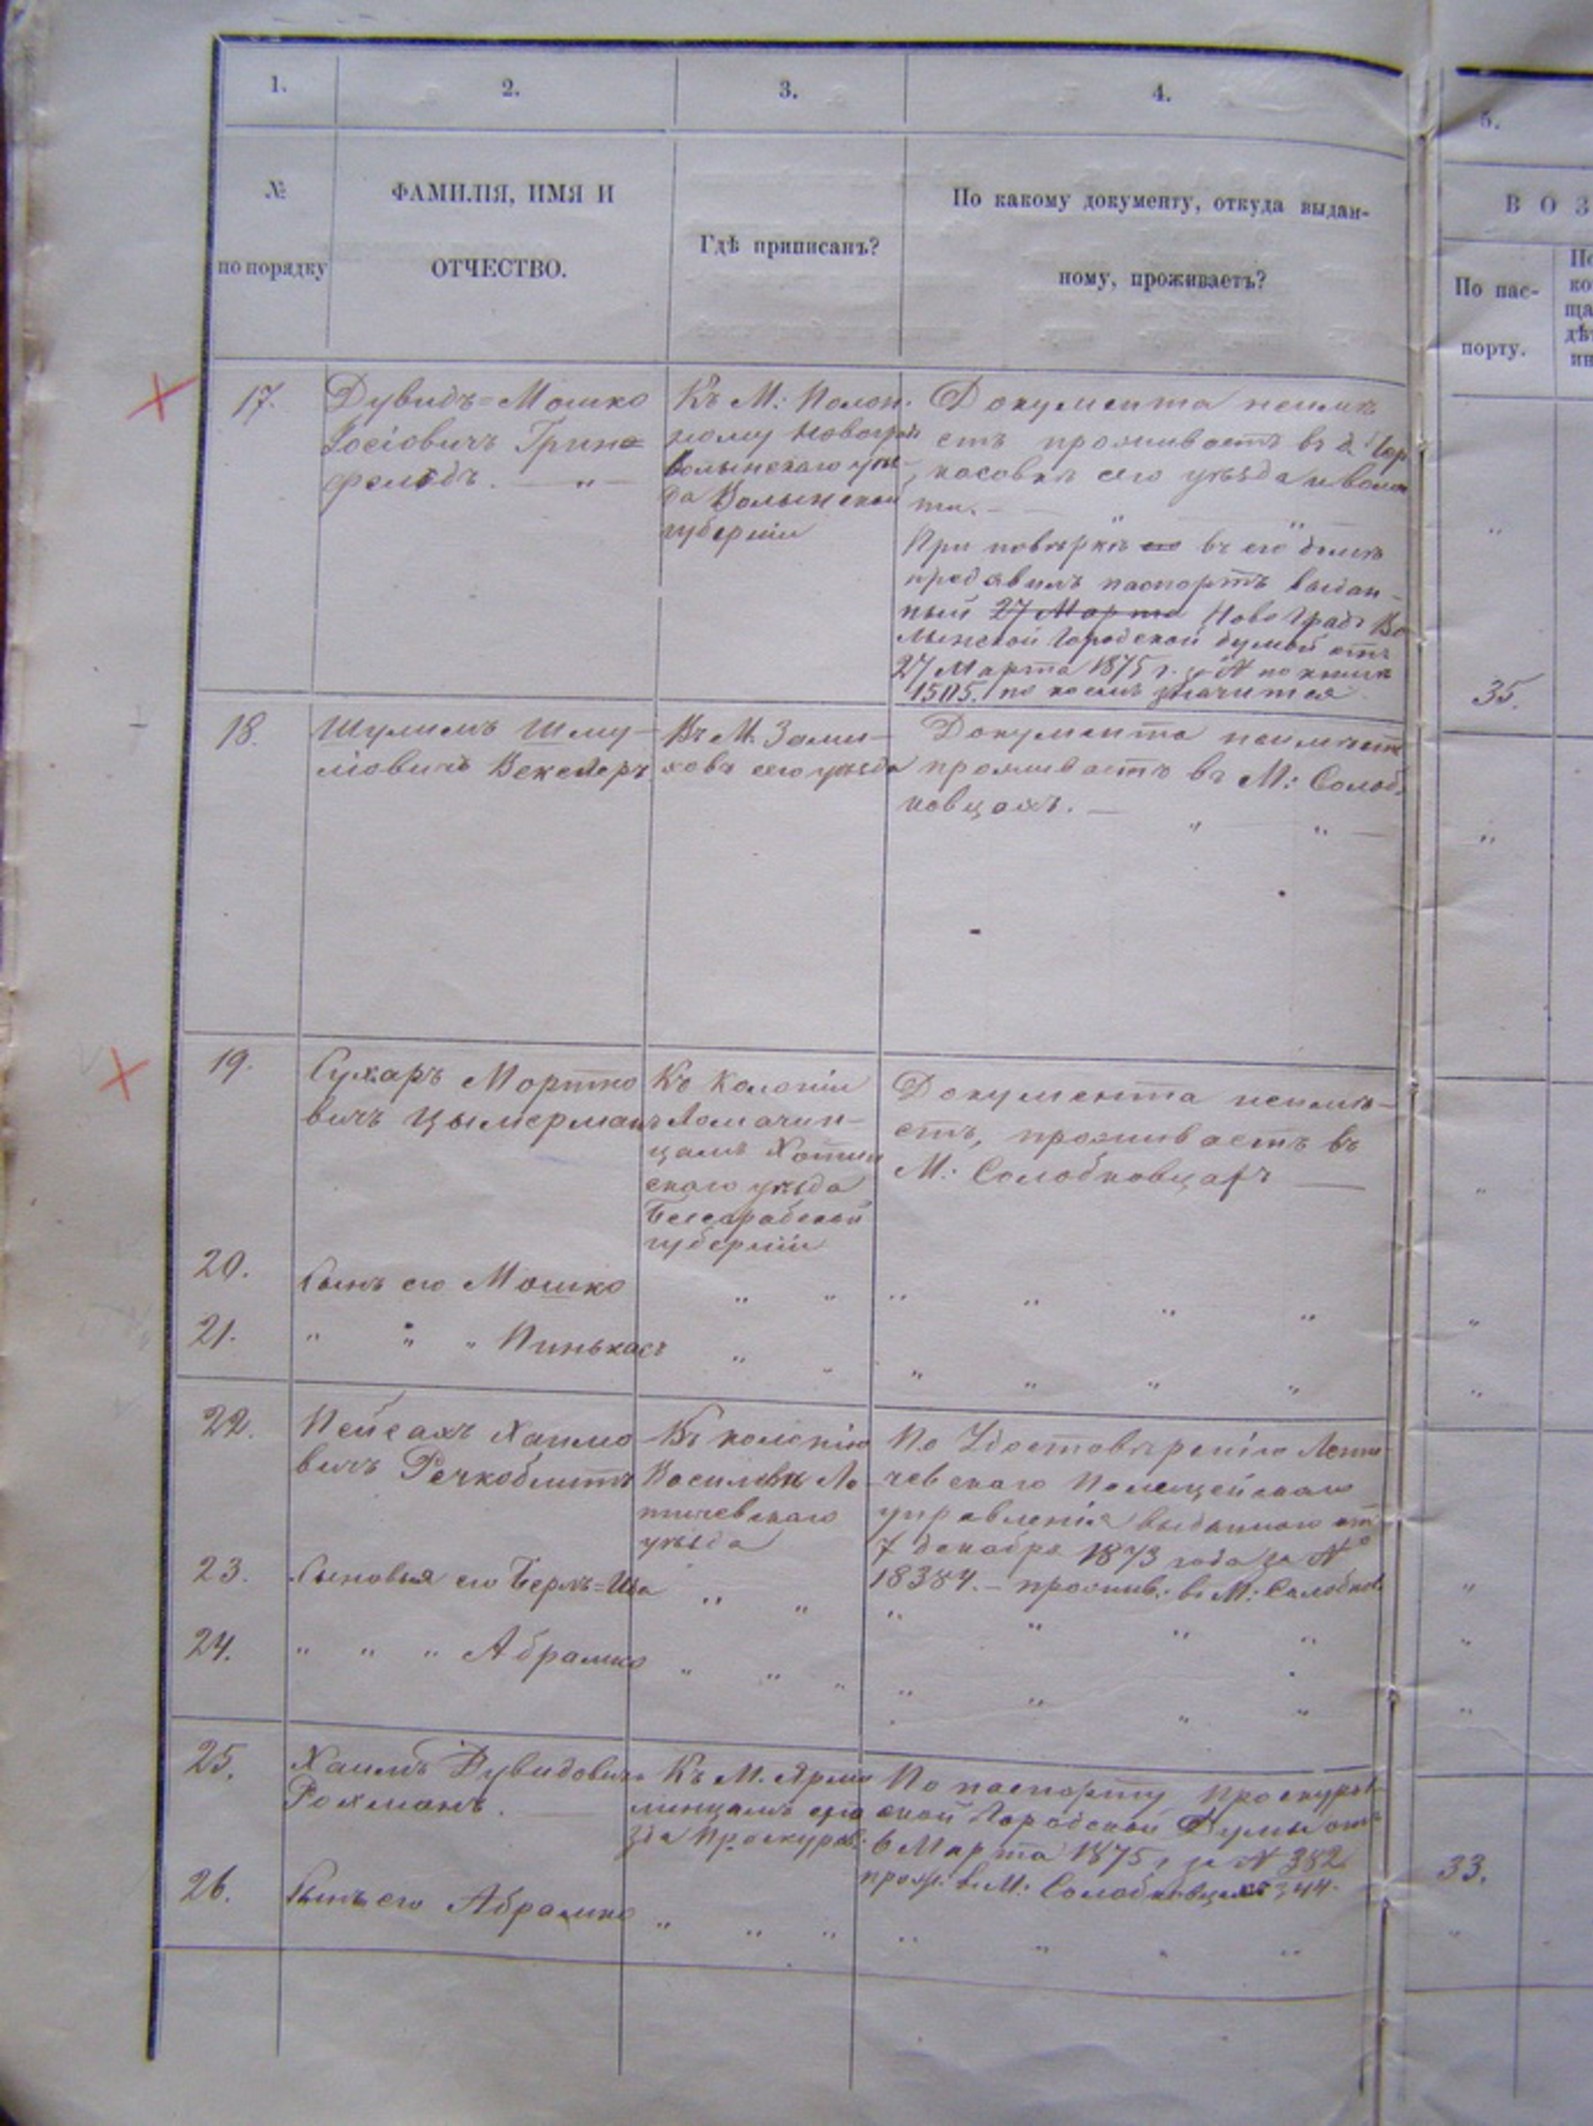 1.
2.
3.
4.
5.
№
по порядку
ФАМИЛІЯ, ИМЯ И
ОТЧЕСТВО.
Гдѣ приписанъ?
По какому документу, откуда выдан-
ному, проживаетъ?
ВОЗ
По пас-
порту.
17.
Дувидъ=Мошко
Іосіовичъ Грин=
фельдъ. — „ —
Къ М: Полон.
ному Новоград
волынскаго уѣз-
да Волынской
губерніи
Документа неимѣ
етъ проживаетъ въ
сего уѣзда и волос
ти. —
При повѣркѣ его въ его домѣ
предявилъ паспортъ выдан-
ный 27 Марта Новоградъ Во
лынской Городской думой отъ
27 Марта 1875 г. за № по книгѣ
1505. по коемъ значится
„
35.
18.
Шулимъ Шму-
ліовичъ Векслеръ
Въ М. Зами-
ховъ сего уѣзда
Документа неимѣетъ
проживаетъ въ М: Солоб
ковцахъ. —
„ „ —
„
19.
Сухаръ Мортко
вичъ Цымерманъ
Къ Колоніи
Ломачин-
цамъ Хотин
скаго уѣзда
Бессарабской
губерніи
Документа неимѣ-
етъ, проживаетъ въ
М: Солобковцахъ —
„
20.
Сынъ его Мошко
„ „ „ „ „ „
„
21.
„ „ „ Пинькасъ
„ „ „ „ „ „
„
22.
Пейсахъ Хаимо
вичъ Речкоблитъ
Въ колонію
Василевкѣ Ле
тичевскаго
уѣзда
По Удостовѣренію Лети
чевскаго Полицейскаго
управленія выданнаго отъ
7 декабря 1873 года за №
18384. — прожив: въ М: Солобков.
23.
Сыновья его Беръ=Ица
„ „ „ „ „ „
„
24.
„ „ „ Абрамко
„ „ „ „ „ „ „
„
25.
Хаимъ Дувидовичъ
Рохманъ. —
Къ М. Ярмо
линцамъ уѣ
зда Проскуров:
По паспорту Проскуров
ской Городской Думы отъ
6 Марта 1875 г за № 382
прож. въ М: Солобковцахъ 344.
33.
26.
Сынъ его Абрамко
„ „ „ „ „ „ „
„